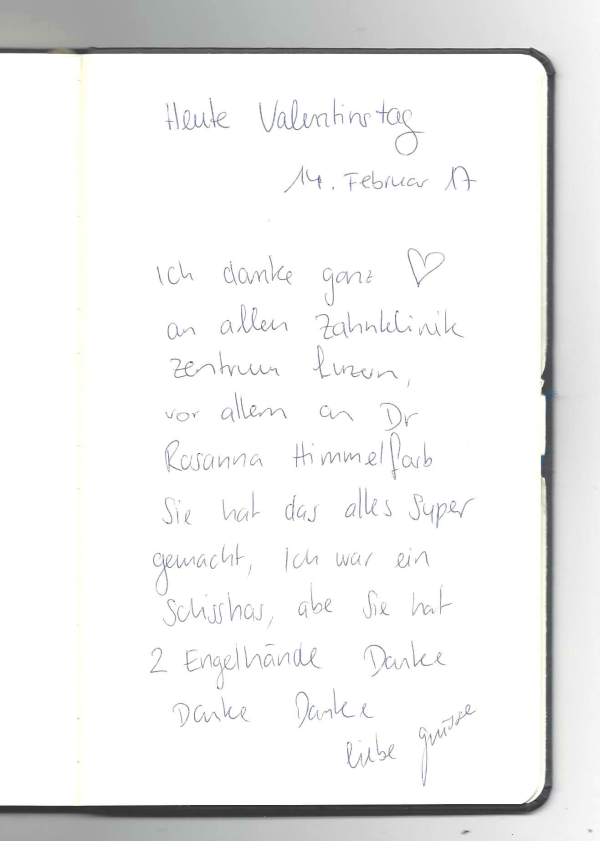 Heute Valentinstag
14. Februar 17
Ich danke ganz ♡
an allen Zahnklinik
Zentrum Luzern,
vor allem an Dr
Rosanna Himmelfarb
Sie hat das alles Super
gemacht, Ich war ein
Schisshas, abe Sie hat
2 Engelhände Danke
Danke Danke
liebe grüsse